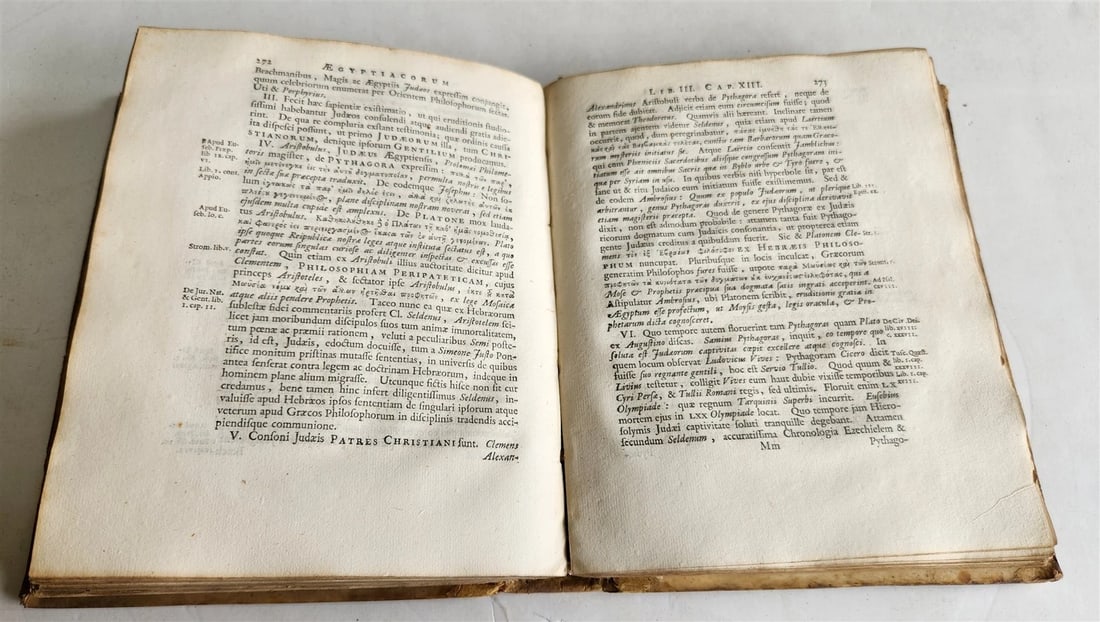 272
ÆGYPTIACORUM
Brachmanibus, Magis ac Ægyptiis Judæos expressim conjungit,
quum celebriorum enumerat per Orientem Philosophorum sectas.
Uti & Porphyrius.
III. Fecit hæc sapientiæ existimatio, ut qui eruditionis studio-
sissimi habebantur Judæos consulendi atque audiendi gratiâ adie-
rint. De qua re complaria exstant testimonia; quæ ordinis causâ
ita dispesci possunt, ut primo JUDÆORUM illa, tum CHRI-
STIANORUM, denique ipsorum GENTILIUM producamus.
IV. Aristobulus, JUDÆUS Ægyptiensis, Ptolomæi Philome-
toris magister, de PYTHAGORA expressim:
in secta sua præcepta traduxit. De eodemque Josephus: Non so-
lum
ejusdem multa cupide est amplexus. De PLATONE mox lauda-
tus Aristobulus.
ipse quoque Reipublicæ nostræ leges atque instituta sectatus est, a quo
partes eorum singulas curiose ac diligenter inspectas & excussas esse
constat. Quin etiam ex Aristobuli illius auctoritate dicitur apud
Clementem, PHILOSOPHIAM PERIPATETICAM, cujus
princeps Aristoteles, & sectator ipse Aristobulus,
atque aliis pendere Prophetis. Taceo nunc ea quæ ex Hebræorum
sublestæ fidei commentariis profert Cl. Seldenus, Aristotelem sci-
licet jam moribundum discipulos suos tum animæ immortalitatem,
tum pœnæ ac præmii rationem, veluti a peculiaribus Semi poste-
ris, id est, Judæis, edoctum docuisse, tum a Simeone Justo Pon-
tifice monitum pristinas mutasse sententias, in universis de quibus
antea senserat contra legem ac doctrinam Hebræorum, indeque in
hominem plane alium migrasse. Utcunque fictis hisce non sit cur
credamus, bene tamen hinc infert diligentissimus Seldenis, in-
valuisse apud Hebræos ipsos sententiam de singulari ipsorum atque
veterum apud Græcos Philosophorum in disciplinis tradendis acci-
piendisque communione.
V. Consoni Judæis PATRES CHRISTIANI sunt. Clemens
Alexan-
Apud Eu-
seb. Præp.
lib. 12. cap.
Lib. 1. cont.
Appio.
Apud Eu-
seb. lo. c.
Strom. lib.
De Jur. Nat.
& Gent. lib.
1. cap. 11.
LIB. III. CAP. XIII.
273
Alexandrinus Aristobuli verba de Pythagora refert, neque de
eorum fide dubitat. Adjicit etiam eum circumcisum fuisse; quod
& memorat Theodoretus. Quamvis alii hæreant. Inclinare tamen
in partem ajentem videtur Seldenus, quia etiam apud Laërtium
occurrit, quod, dum peregrinabatur,
rum mysteriis initiatus sit. Atque Laërtio consentit Jamblichus:
qui cum Phœniciis Sacerdotibus aliisque congressum Pythagoram ini-
tiatum esse ait omnibus Sacris quæ in Byblo arbe & Tyro fuere, &
que per Syriam in usu. In quibus verbis nisi hyperbole sit, par est
sane ut & ritu Judaico eum initiatum fuisse existimemus. Sed &
de eodem Ambrosius: Quum ex populo Judæorum, ut plerique
arbitrantur, genus Pythagoras duxerit, ex ejus disciplina derivavit
etiam magisteris præcepta. Quod de genere Pythagoræ ex Judæis
dixit, non est admodum probabile: attamen tanta fuit Pythago-
ricorum dogmatum cum Judaicis consonantia, ut propterea etiam
gente Judæus creditus a quibusdam fuerit. Sic & Platonem Cle-
mens EX HEBRÆIS PHILOSO-
PHUM nuncupat. Pluribusque in locis inculcat, Græcorum
generatim Philosophos fures fuisse, utpote
Mose & Prophetis præcipua sua dogmata satis ingrati acceperint.
Astipulatur Ambrosius, ubi Platonem scribit, eruditionis gratia in
Ægyptum esse profectum, ut Moysi gesta, legis oracula, & Pro-
phetarum dicta cognosceret.
VI. Quo tempore autem floruerint tam Pythagoras quam Plato
ex Augustino discas. Samius Pythagoras, inquit, eo tempore quo
soluta est Judæorum captivitas cœpit excellere atque cognosci. In
quem locum observat Ludovicus Vives: Pythagoram Cicero dicit
fuisse suo regnante gentili, hoc est Servio Tullio. Quod quum &
Livius testetur, colligit Vives eum haut dubie vixisse temporibus
Cyri Persæ, & Tullii Romani regis, sed ultimis. Floruit enim LX
Olympiade: quæ regnum Tarquinii Superbi incurrit. Eusebius
mortem ejus in LXX Olympiade locat. Quo tempore jam Hiero-
solymis Judæi captivitate soluti tranquille degebant. Attamen
secundum Seldenum, accuratissima Chronologia Ezechielem &
Mm
Pythago-
Lib. III.
De Civ. Dei.
lib. XVIII.
c. XXXVII.
Tusc. Quæst.
Lib. 1. cap.
XXXVIII.
Lib. 1. cap.
XVIII.